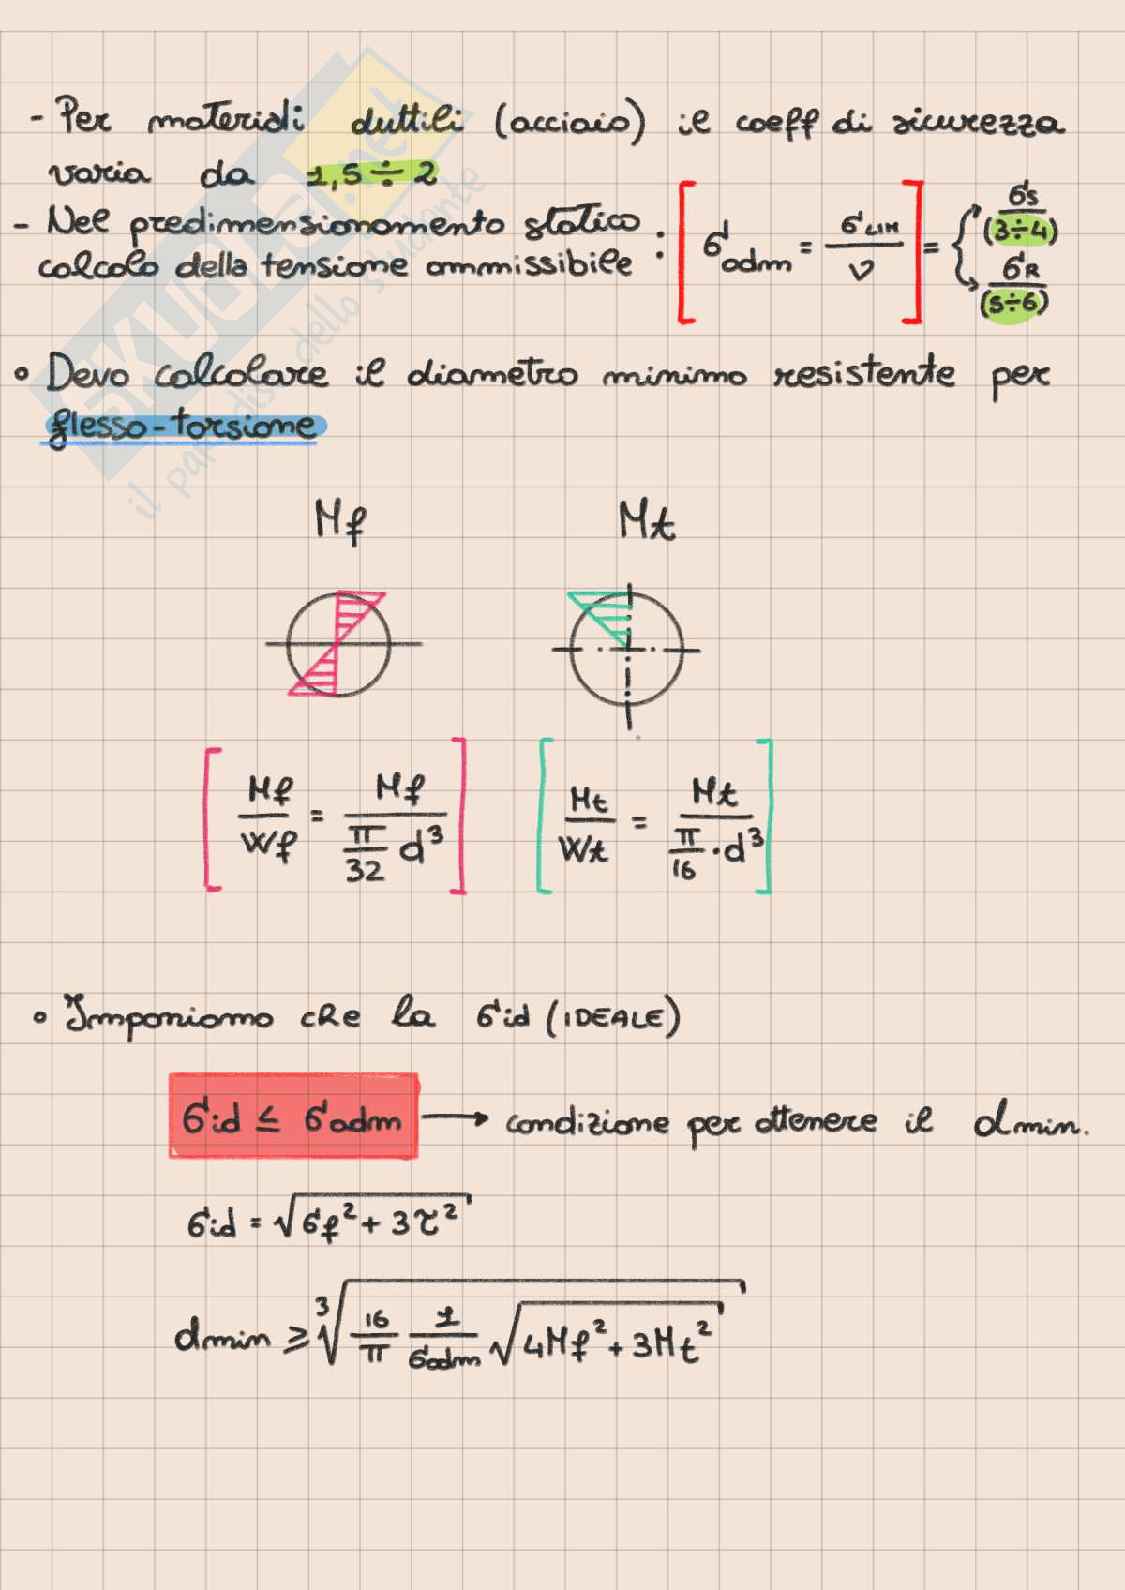 - Per materiali duttili (acciaio) il coeff di sicurezza
varia da 1,5 ÷ 2
- Nel predimensionamento statico
calcolo della tensione ammissibile : [σadm = σLIM / ν] = { σS / (3÷4) ; σR / (5÷6)
• Devo calcolare il diametro minimo resistente per
flesso-torsione
Mf Mt
[Mf / Wf = Mf / (π/32 d³)] [Mt / Wt = Mt / (π/16 · d³)]
• Imponiamo che la σid (IDEALE)
σid ≤ σadm → condizione per ottenere il dmin.
σid = √(σf² + 3τ²)
dmin ≥ ∛(16/π 1/σadm √(4Mf² + 3Mt²))
SKUOLA.net
il paradiso dello studente